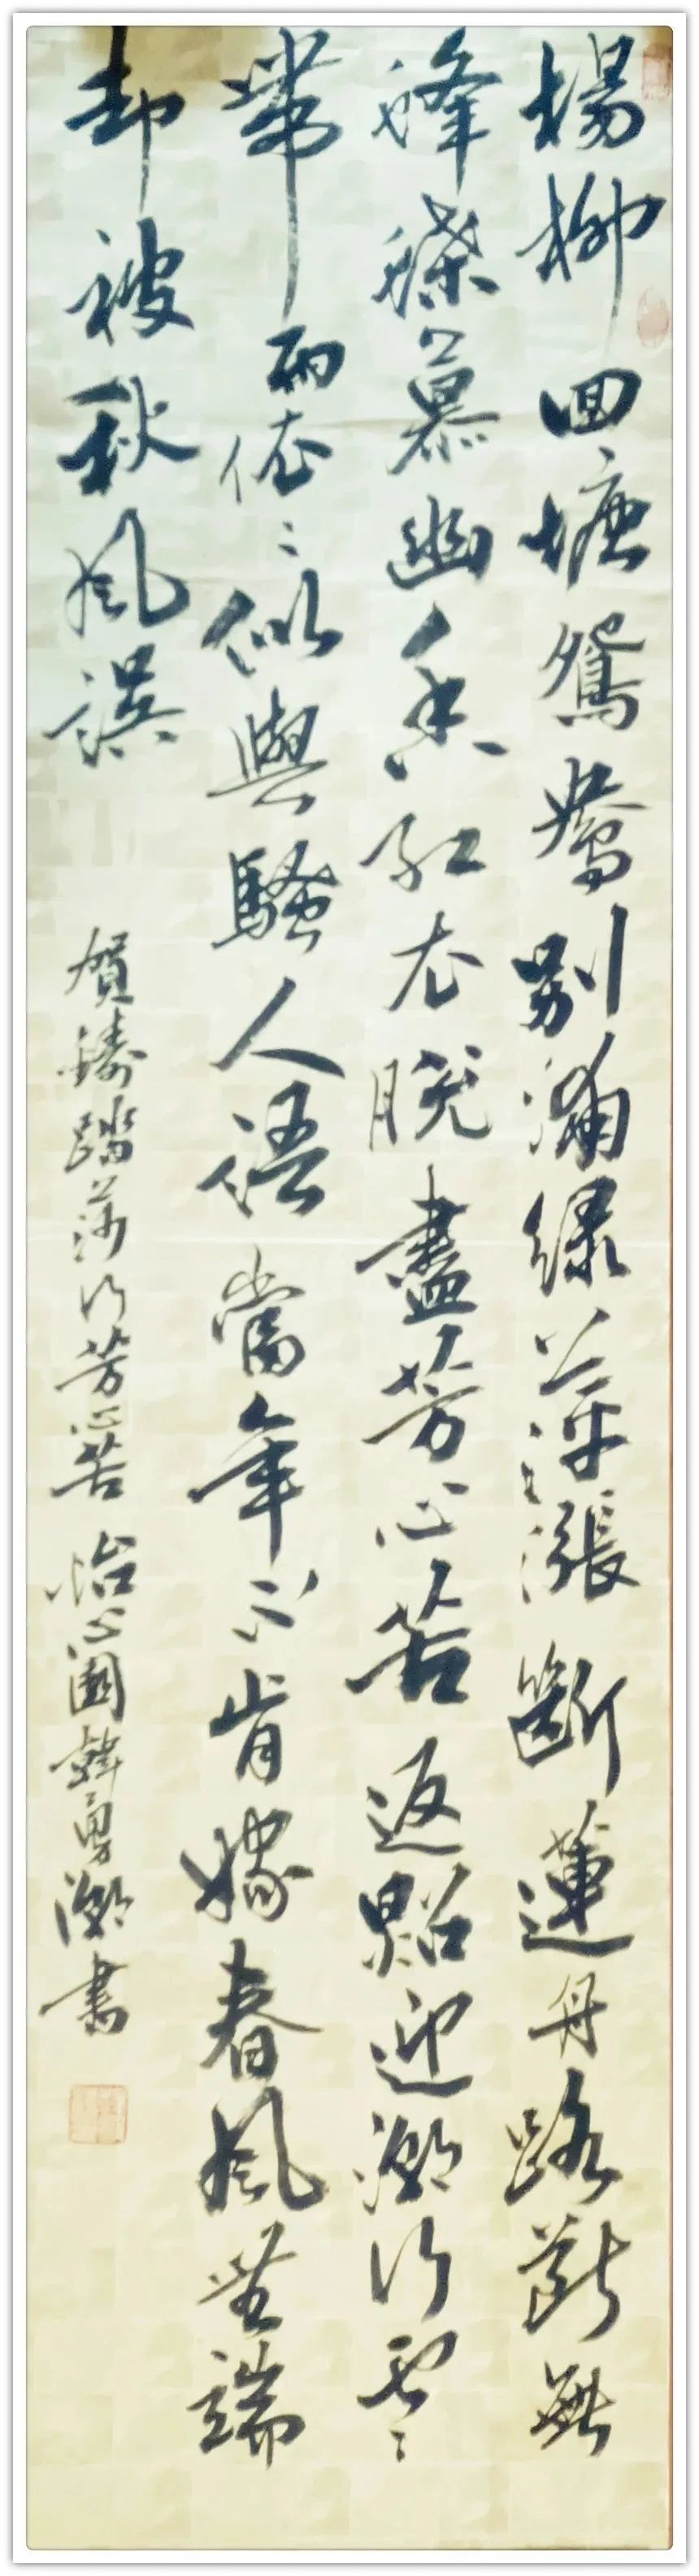 楊柳回塘鴛鴦別浦綠萍漲斷蓮舟路斷無
蜂蝶慕幽香紅衣脫盡芳心苦返照迎潮行雲
帶雨依〻似與騷人語當年不肯嫁春風無端
却被秋風誤
賀鑄踏莎行芳心苦 怡心園韓勇潮書